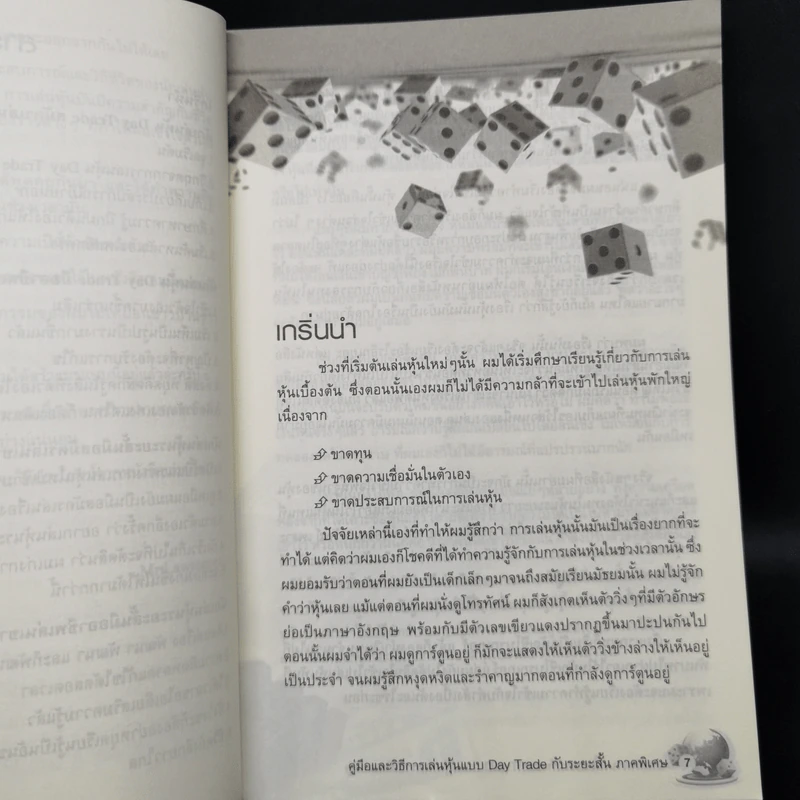 เกริ่นนำ
ช่วงที่เริ่มต้นเล่นหุ้นใหม่ๆนั้น ผมได้เริ่มศึกษาเรียนรู้เกี่ยวกับการเล่น
หุ้นเบื้องต้น ซึ่งตอนนั้นเองผมก็ไม่ได้มีความกล้าที่จะเข้าไปเล่นหุ้นพักใหญ่
เนื่องจาก
ขาดทุน
ขาดความเชื่อมั่นในตัวเอง
ขาดประสบการณ์ในการเล่นหุ้น
ปัจจัยเหล่านี้เองที่ทำให้ผมรู้สึกว่า การเล่นหุ้นนั้นมันเป็นเรื่องยากที่จะ
ทำได้ แต่คิดว่าผมเองก็โชคดีที่ได้ทำความรู้จักกับการเล่นหุ้นในช่วงเวลานั้น ซึ่ง
ผมยอมรับว่าตอนที่ผมยังเป็นเด็กเล็กๆมาจนถึงสมัยเรียนมัธยมนั้น ผมไม่รู้จัก
คำว่าหุ้นเลย แม้แต่ตอนที่ผมนั่งดูโทรทัศน์ ผมก็สังเกตเห็นตัววิ่งๆที่มีตัวอักษร
ย่อเป็นภาษาอังกฤษ พร้อมกับมีตัวเลขเขียวแดงปรากฏขึ้นมาปะปนกันไป
ตอนนั้นผมจำได้ว่า ผมดูการ์ตูนอยู่ ก็มักจะแสดงให้เห็นตัววิ่งข้างล่างให้เห็นอยู่
เป็นประจำ จนผมรู้สึกหงุดหงิดและรำคาญมากตอนที่กำลังดูการ์ตูนอยู่
คู่มือและวิธีการเล่นหุ้นแบบ Day Trade กับระยะสั้น ภาคพิเศษ 7